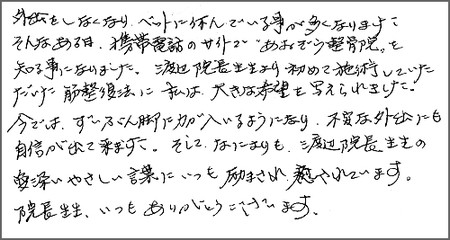 外出をしなくなり、ベットに休んでいる事が多くなりました。
そんなある日、携帯電話のサイトで“あおぞら整骨院”を
知る事になりました。渡辺院長先生より初めて施術していた
だけた筋整復法に私は、大きな希望を与えられました。
今では、ずいぶん脚に力が入いるようになり、不安な外出にも
自信が出て来ます。そして、なによりも、渡辺院長先生の
愛深いやさしい言葉にいつも励まされ、癒されています。
院長先生、いつもありがとうございます。